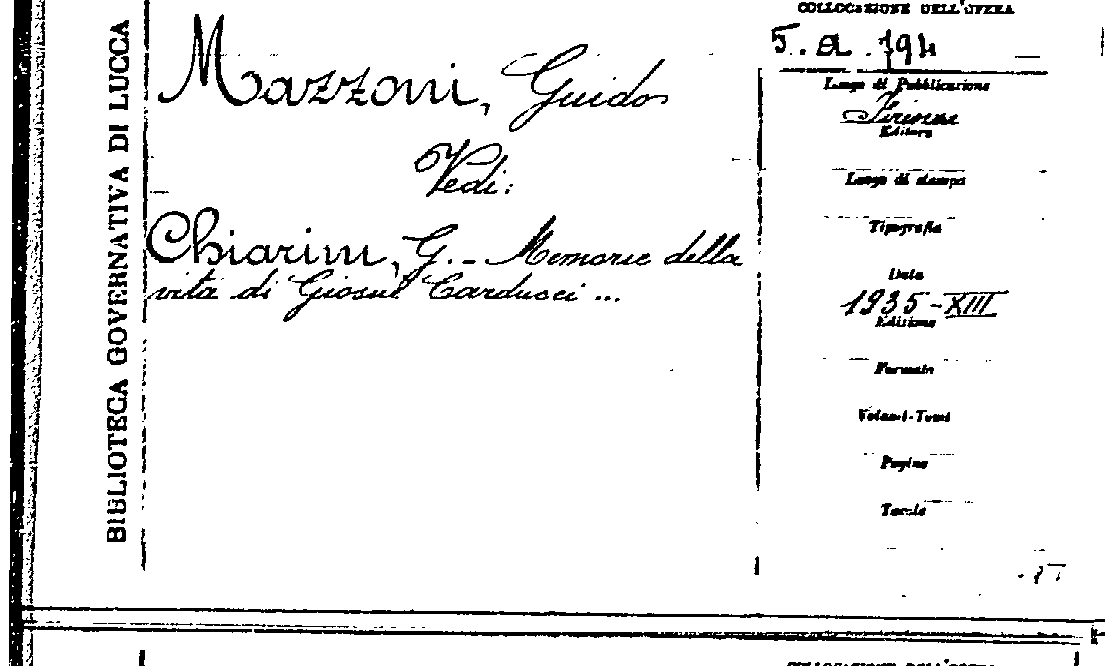 BIBLIOTECA GOVERNATIVA DI LUCCA
Mazzoni, Guido
Vedi:
Chiarini, G. - Memorie della
vita di Giosue Carducci ...
COLLOCAZIONE DELL'OPERA
5. a. 194
Luogo di Pubblicazione
Firenze
Editore
Luogo di stampa
Tipografia
Data
1935-XIII
Edizione
Formato
Volumi-Tomi
Pagine
Tavole
COLLOCAZIONE DELL'OPERA